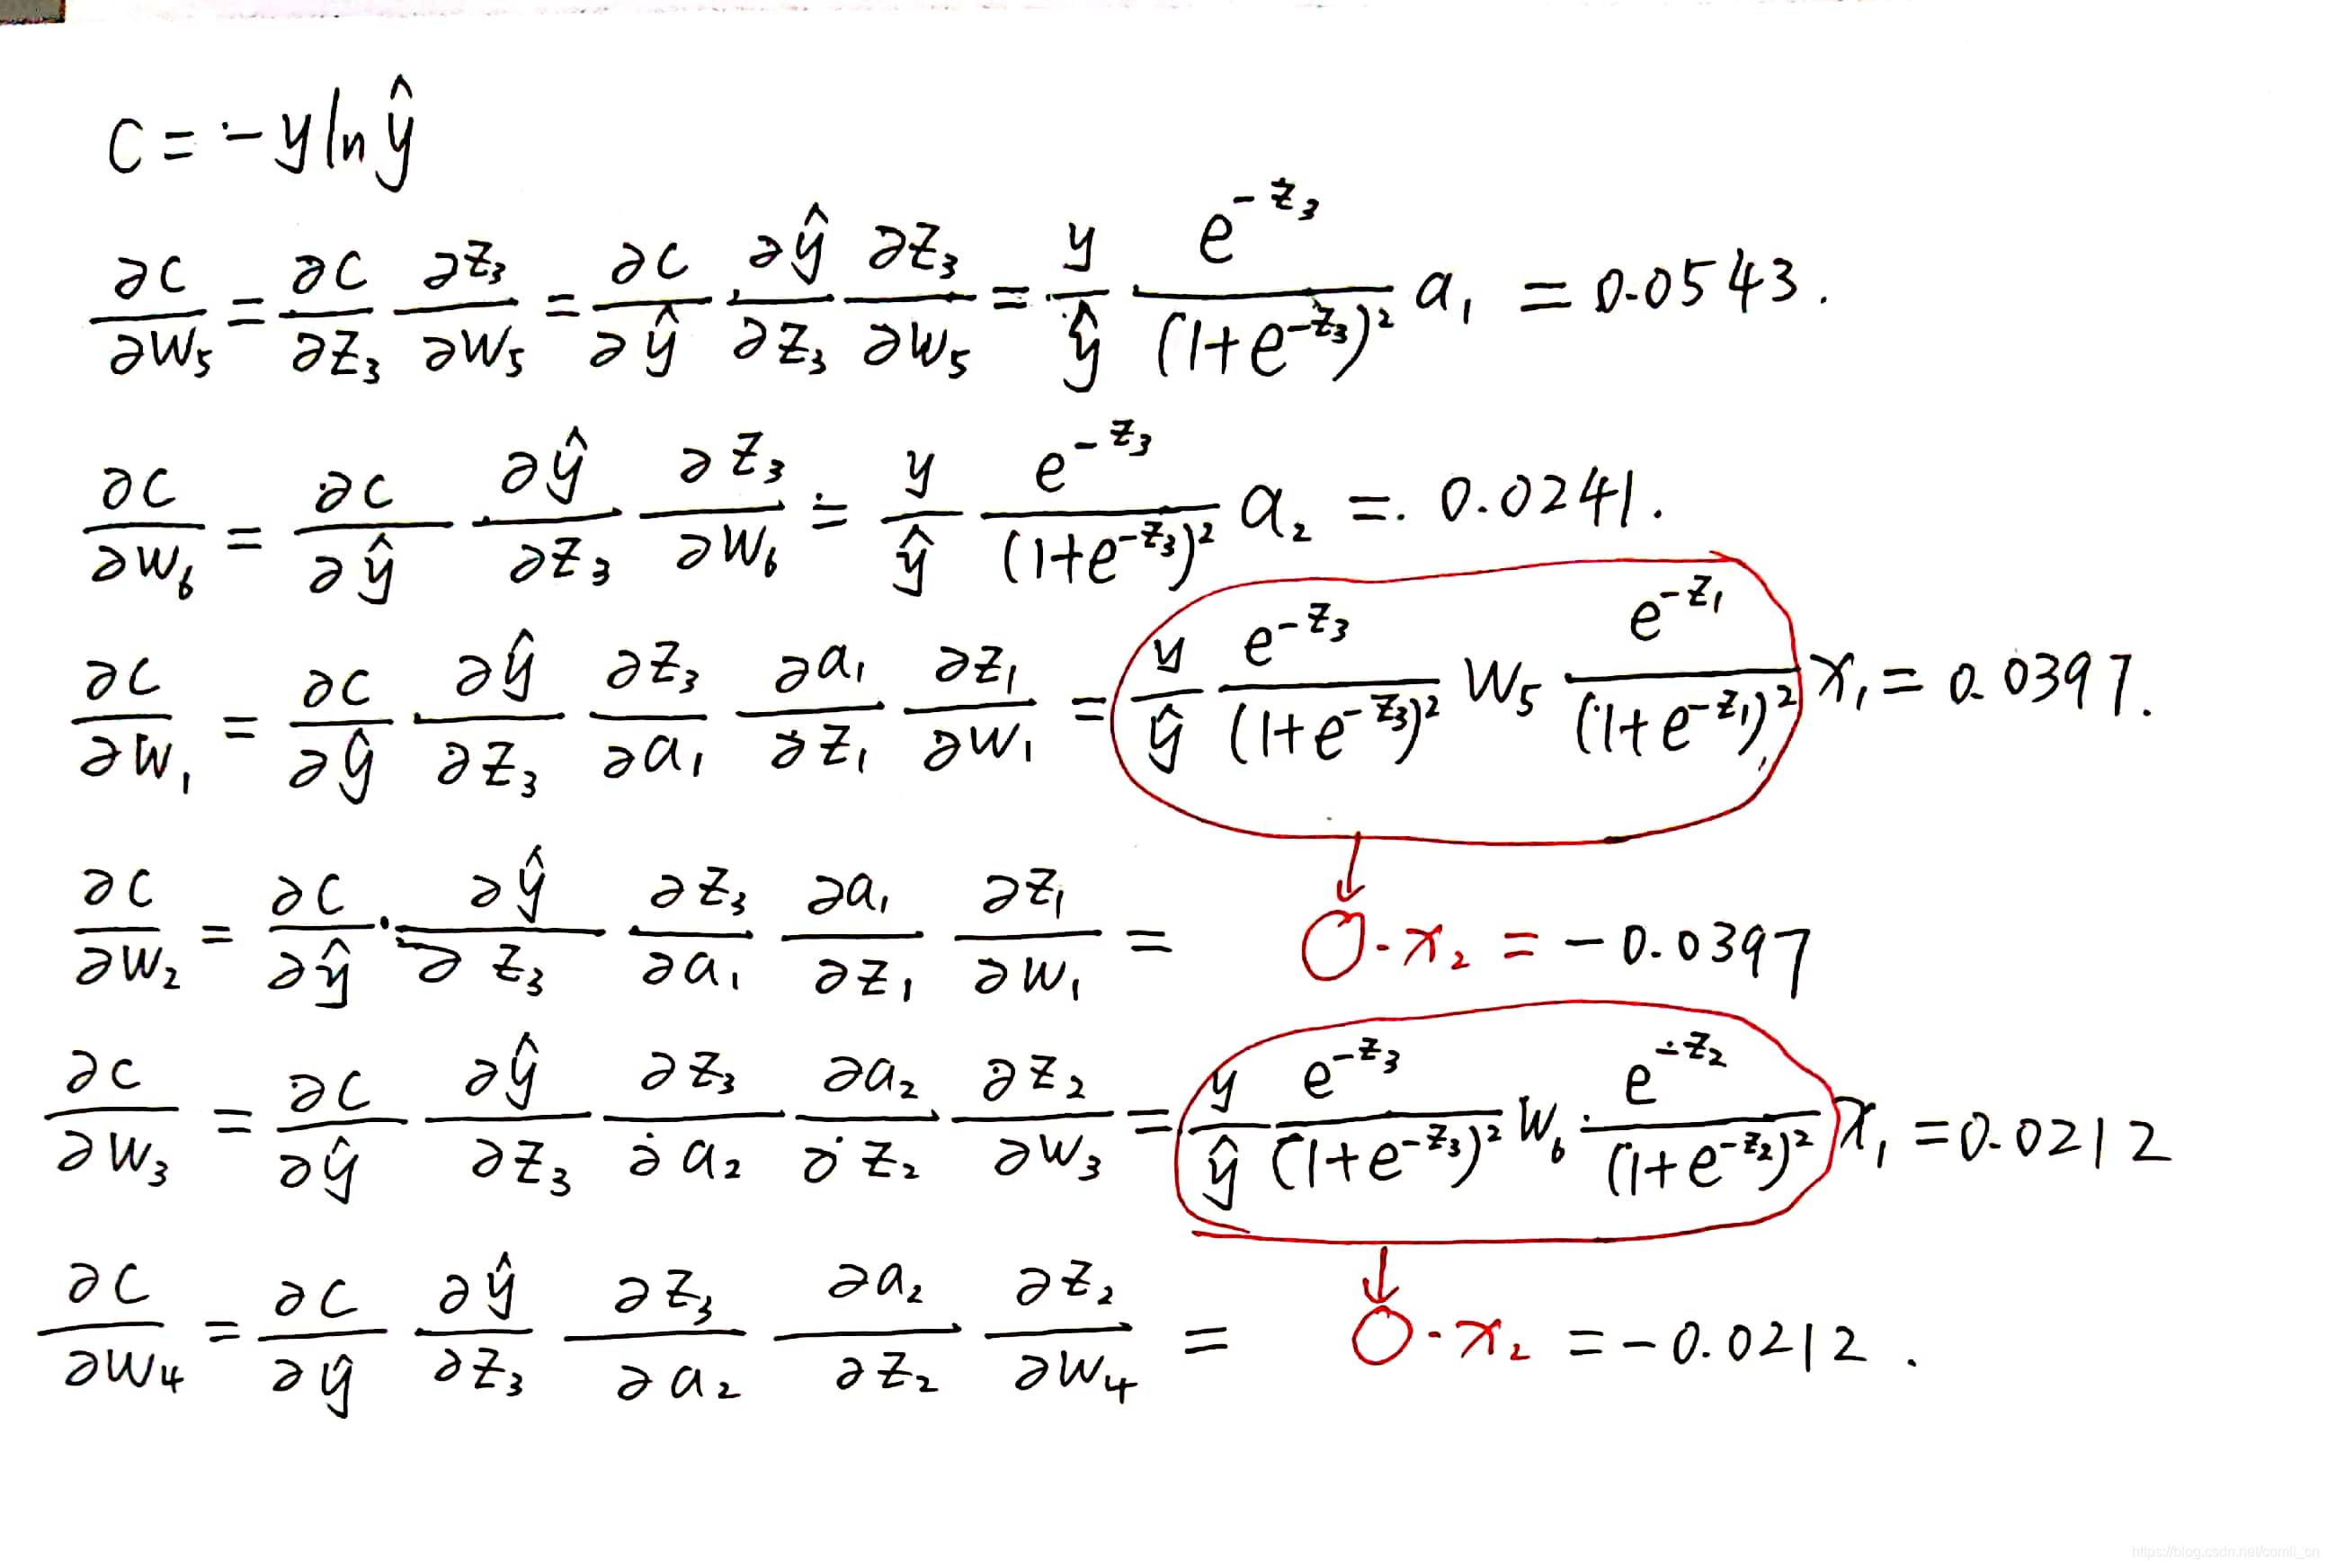 C = -y ln ŷ
∂C/∂W₅ = ∂C/∂Z₃ ∂Z₃/∂W₅ = ∂C/∂ŷ ∂ŷ/∂Z₃ ∂Z₃/∂W₅ = y/ŷ e^(-Z₃)/(1+e^(-Z₃))² a₁ = 0.0543.
∂C/∂W₆ = ∂C/∂ŷ ∂ŷ/∂Z₃ ∂Z₃/∂W₆ = y/ŷ e^(-Z₃)/(1+e^(-Z₃))² a₂ = 0.0241.
∂C/∂W₁ = ∂C/∂ŷ ∂ŷ/∂Z₃ ∂Z₃/∂a₁ ∂a₁/∂Z₁ ∂Z₁/∂W₁ = y/ŷ e^(-Z₃)/(1+e^(-Z₃))² W₅ e^(-Z₁)/(1+e^(-Z₁))² x₁ = 0.0397.
∂C/∂W₂ = ∂C/∂ŷ · ∂ŷ/∂Z₃ ∂Z₃/∂a₁ ∂a₁/∂Z₁ ∂Z₁/∂W₁ = ○ · x₂ = -0.0397
∂C/∂W₃ = ∂C/∂ŷ ∂ŷ/∂Z₃ ∂Z₃/∂a₂ ∂a₂/∂Z₂ ∂Z₂/∂W₃ = y/ŷ e^(-Z₃)/(1+e^(-Z₃))² W₆ · e^(-Z₂)/(1+e^(-Z₂))² x₁ = 0.0212
∂C/∂W₄ = ∂C/∂ŷ ∂ŷ/∂Z₃ ∂Z₃/∂a₂ ∂a₂/∂Z₂ ∂Z₂/∂W₄ = ○ · x₂ = -0.0212.
https://blog.csdn.net/comli_cn